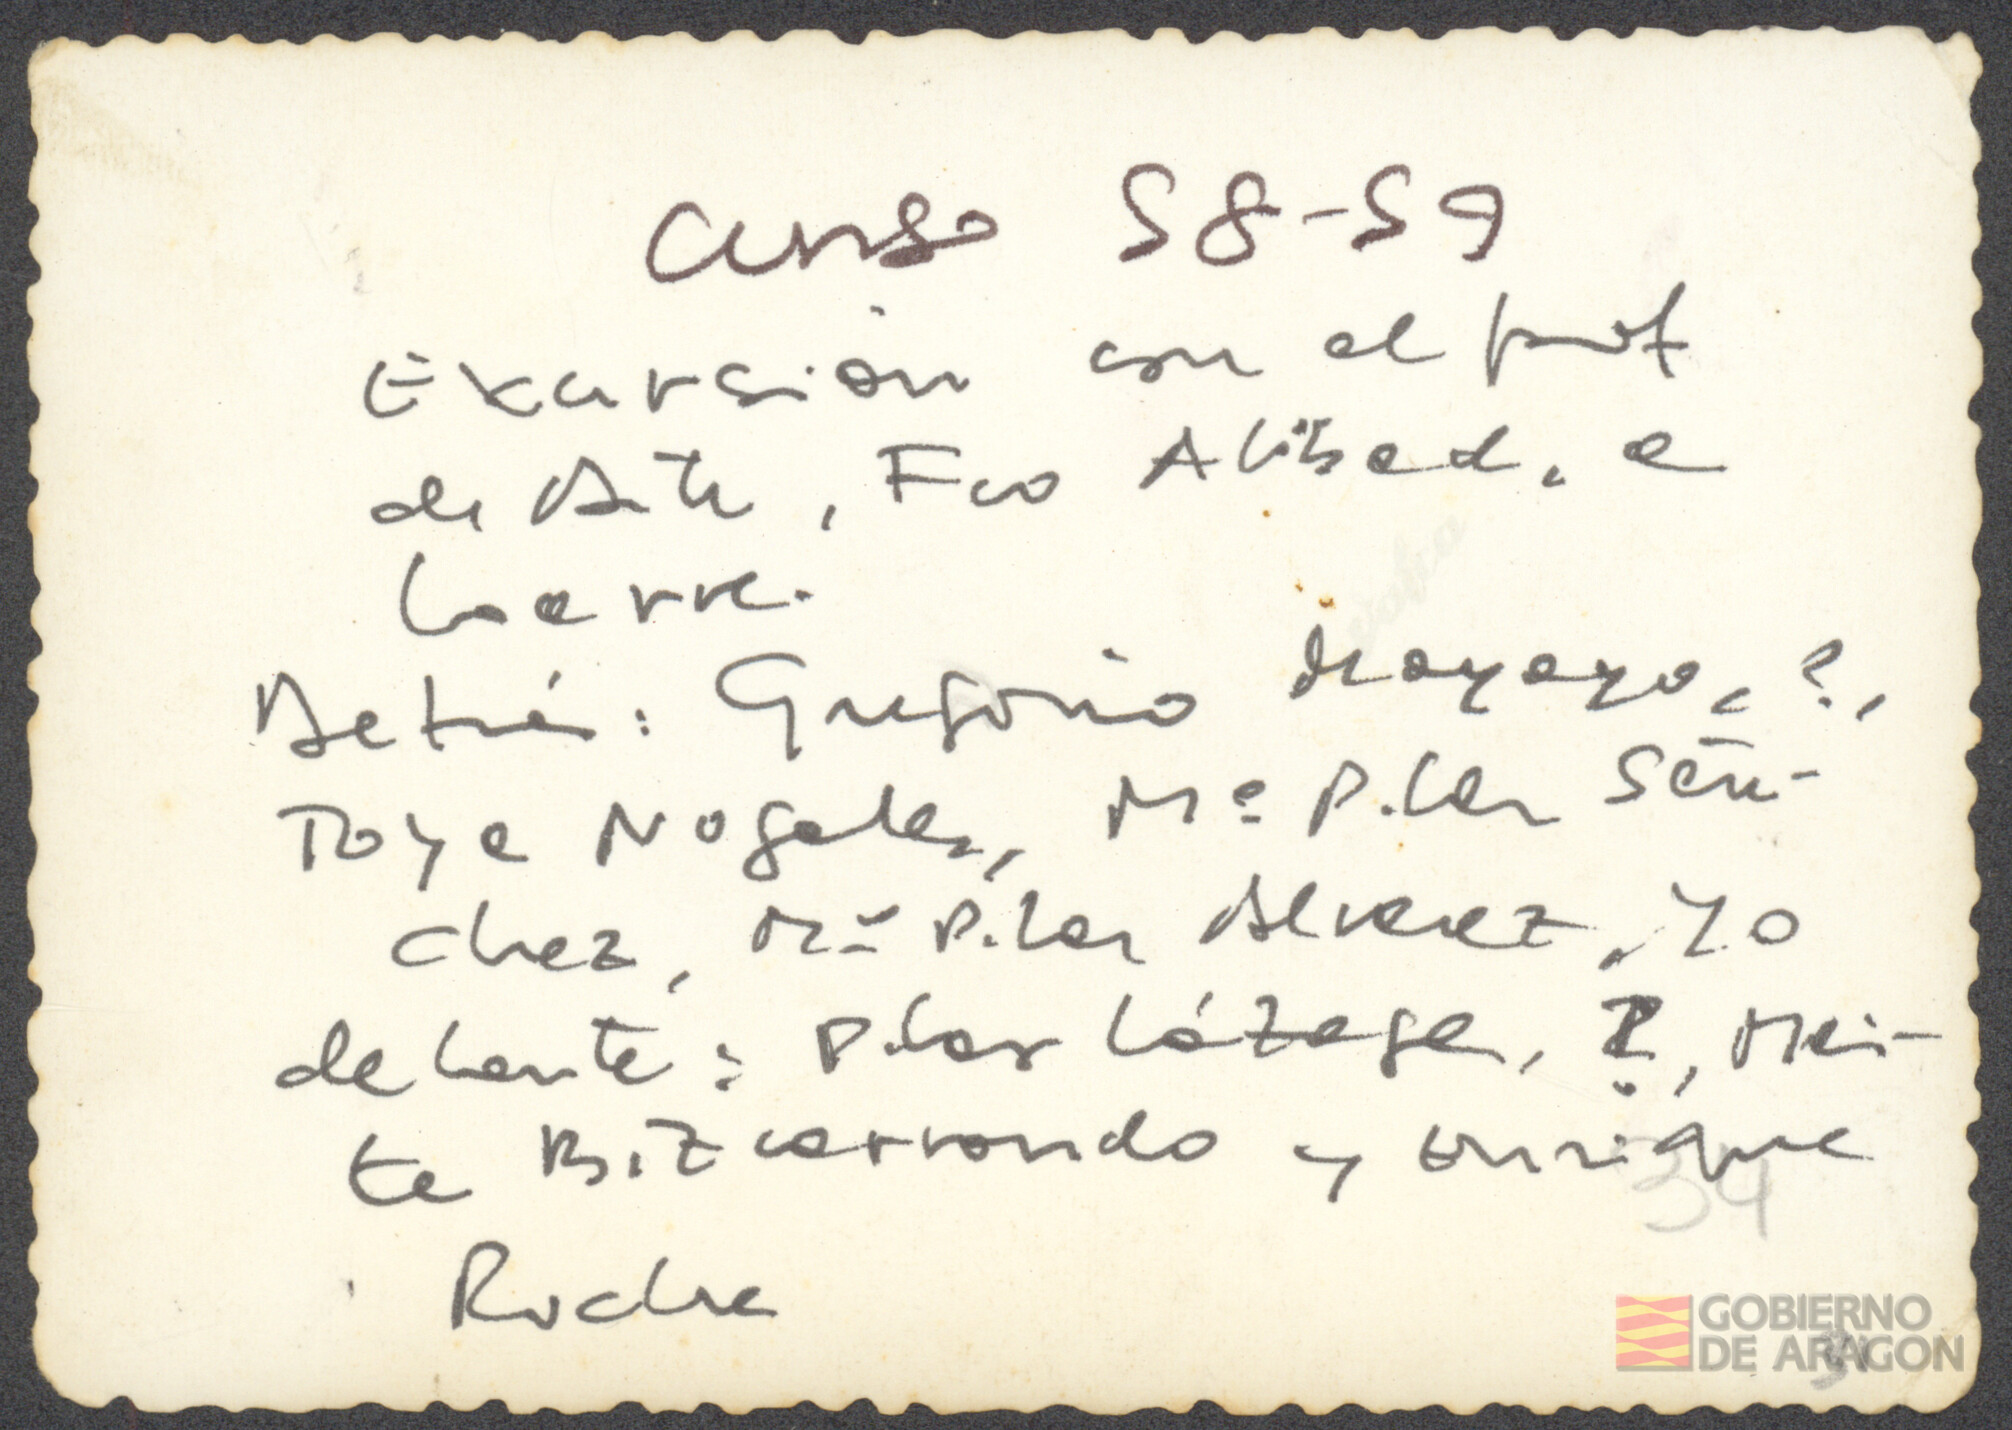 Curso 58-59
Excursión con el prof
de Arte, Fco Abbad, a
Loarre.
Detrás: Gregorio Mayayo, ?,
Toya Nogales, Mª Pilar Sán-
chez, Mª Pilar Alvarez, yo
delante: Pilar Lázaga, ?, Mai-
te Bizcarrondo y Enrique
Roche
34
GOBIERNO
DE ARAGON